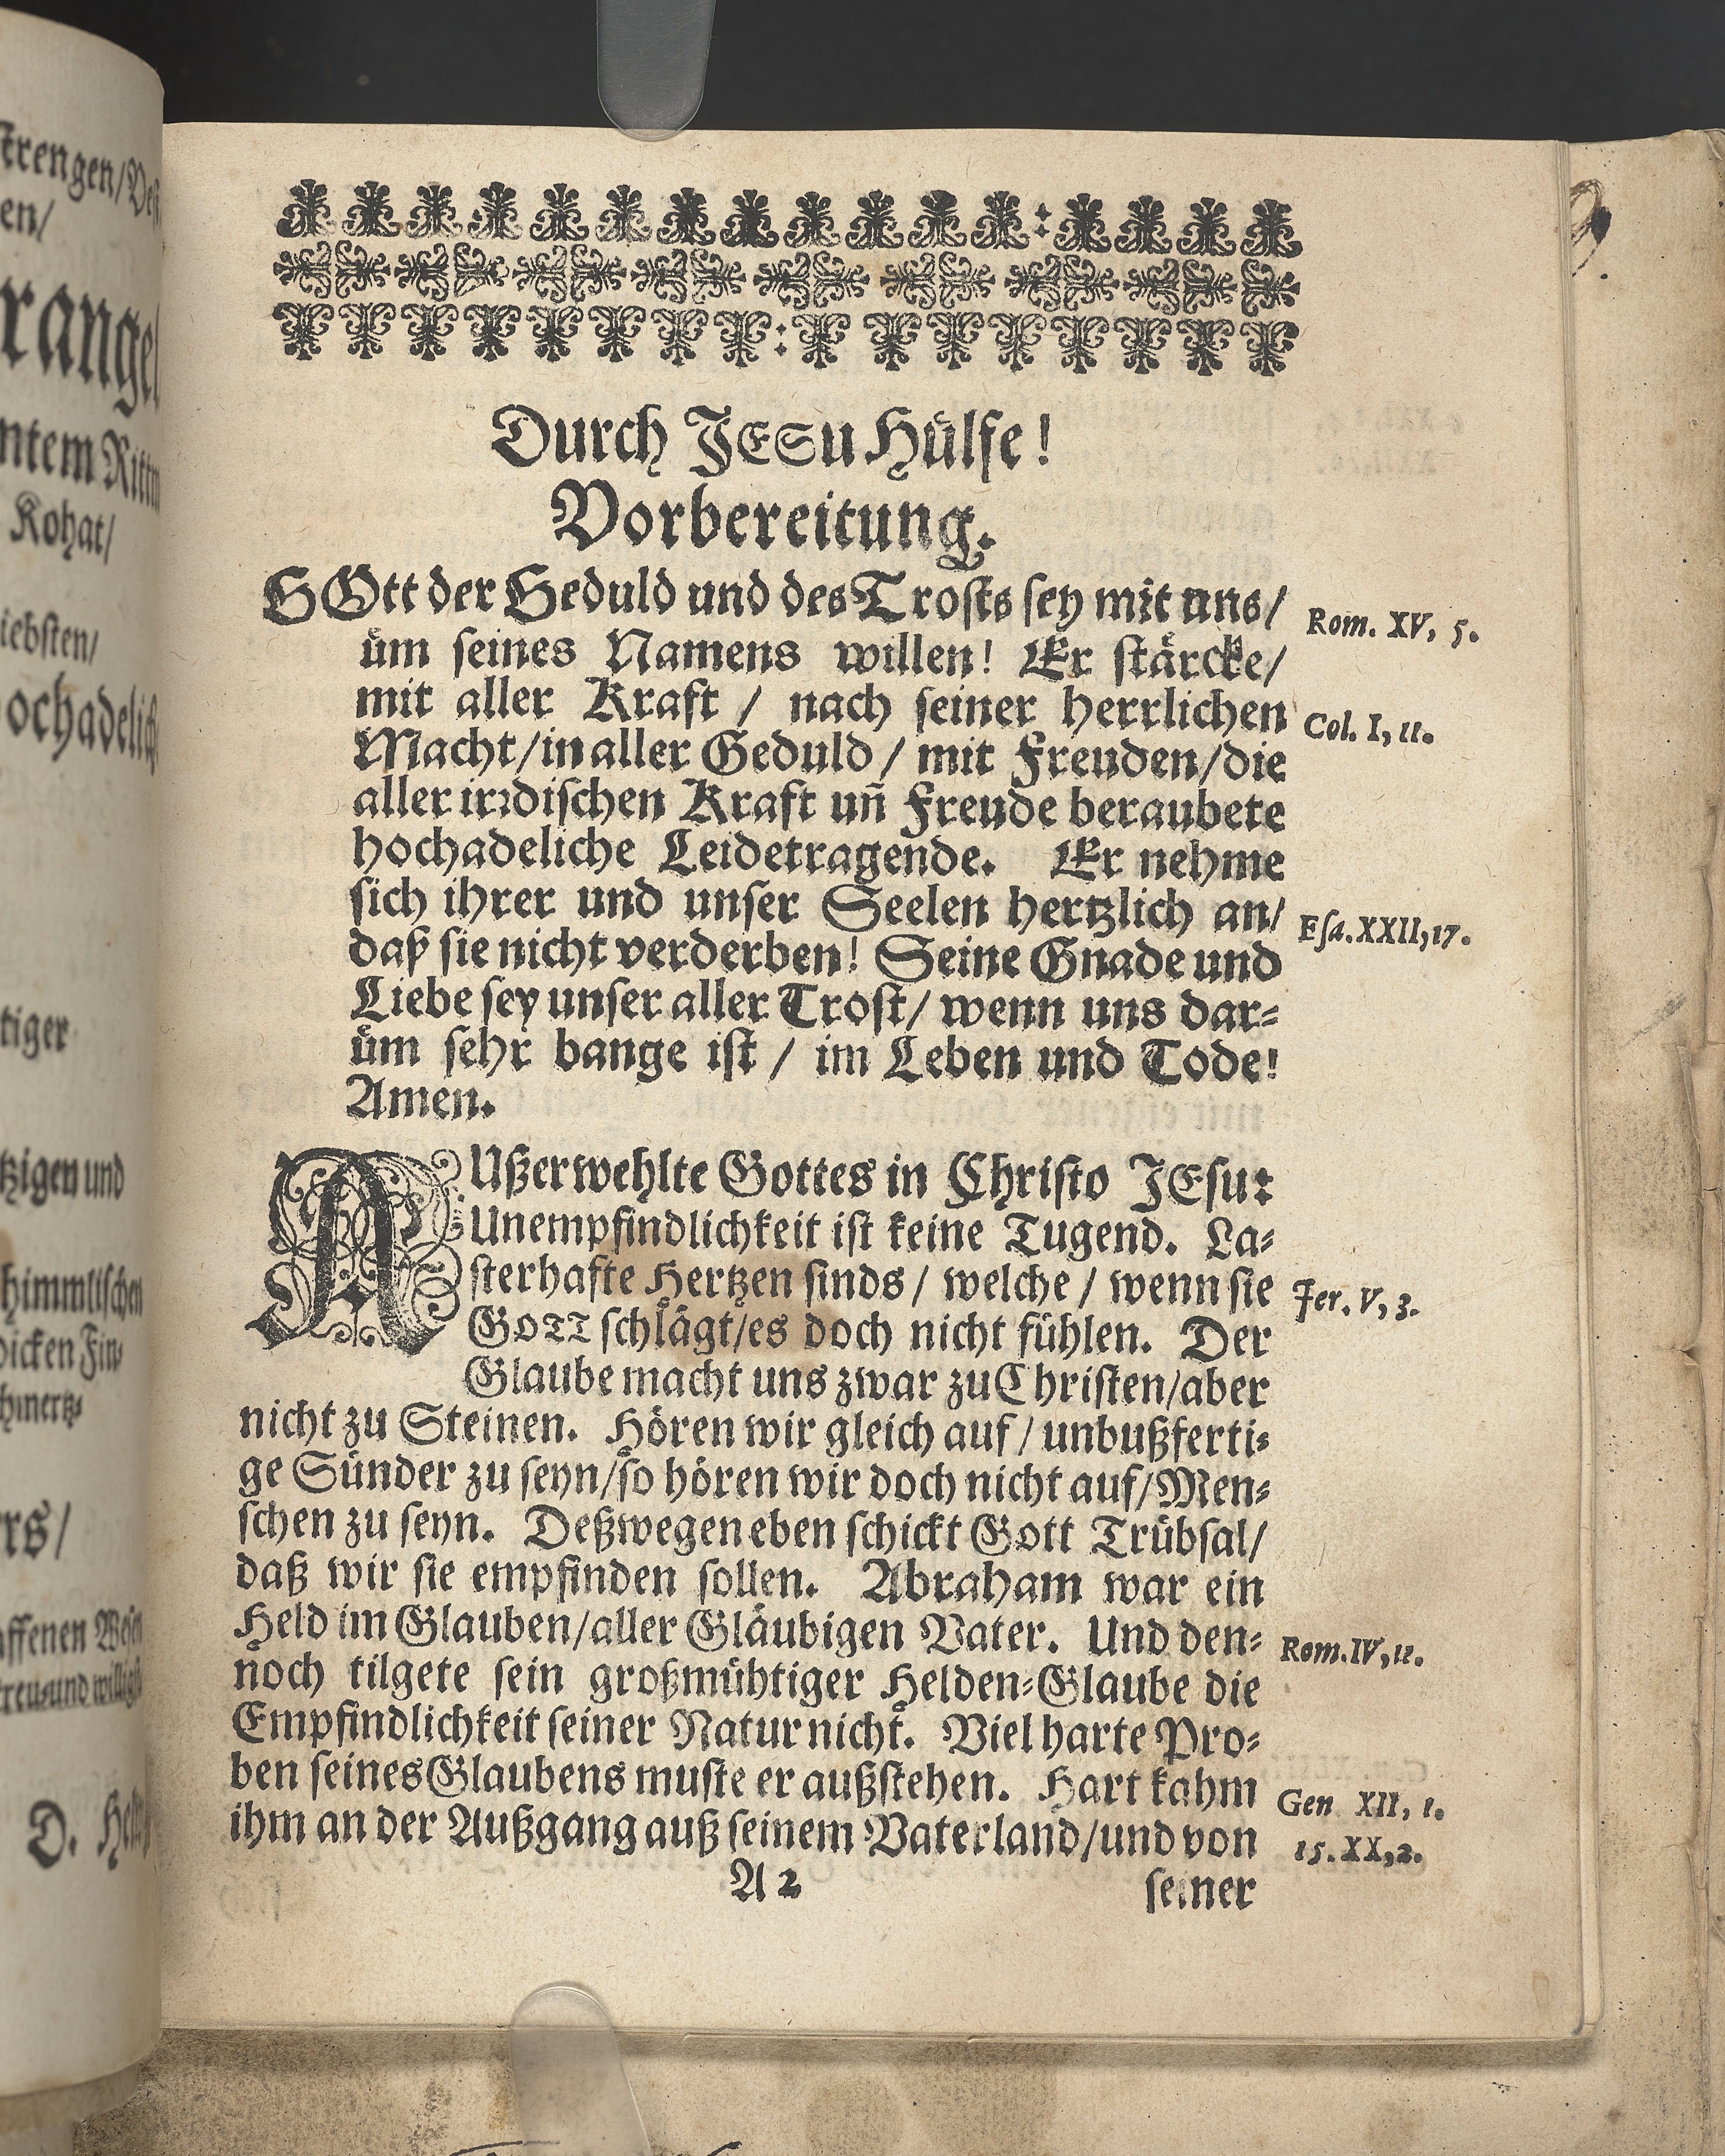 strengen/
en/
rangel
ntem Rittm
Kohat/
iebsten/
ochadelich
tiger
tzigen und
himmlischen
dicken Fin⸗
hmertz⸗
rs/
affenen
treu⸗und willigst
D.
Durch JESu Hülfe!
Vorbereitung.
GOtt der Geduld und des Trosts sey mit uns/
üm seines Namens willen! Er stärcke/
mit aller Kraft / nach seiner herrlichen
Macht/in aller Geduld / mit Freuden/die
aller irꝛdischen Kraft uñ Freude beraubete
hochadeliche Leidetragende. Er nehme
sich ihrer und unser Seelen hertzlich an/
daß sie nicht verderben! Seine Gnade und
Liebe sey unser aller Trost/ wenn uns dar⸗
üm sehr bange ist / im Leben und Tode!
Amen.
Rom. XV, 5.
Col. I, 11.
Esa. XXII, 17.
AUßerwehlte Gottes in Christo JEsu:
Unempfindlichkeit ist keine Tugend. La⸗
sterhafte Hertzen sinds / welche / wenn sie
GOTT schlägt/es doch nicht fühlen. Der
Glaube macht uns zwar zu Christen/aber
nicht zu Steinen. Hören wir gleich auf / unbußferti⸗
ge Sünder zu seyn/so hören wir doch nicht auf/Men⸗
schen zu seyn. Deßwegen eben schickt Gott Trübsal/
daß wir sie empfinden sollen. Abraham war ein
Held im Glauben/aller Gläubigen Vater. Und den⸗
noch tilgete sein großmühtiger Helden⸗Glaube die
Empfindlichkeit seiner Natur nicht. Viel harte Pro⸗
ben seines Glaubens muste er außstehen. Hart kahm
ihm an der Außgang auß seinem Vaterland/und von
Jer. V, 3.
Rom. IV, 11.
Gen XII, 1.
15. XX, 2.
A 2
seiner